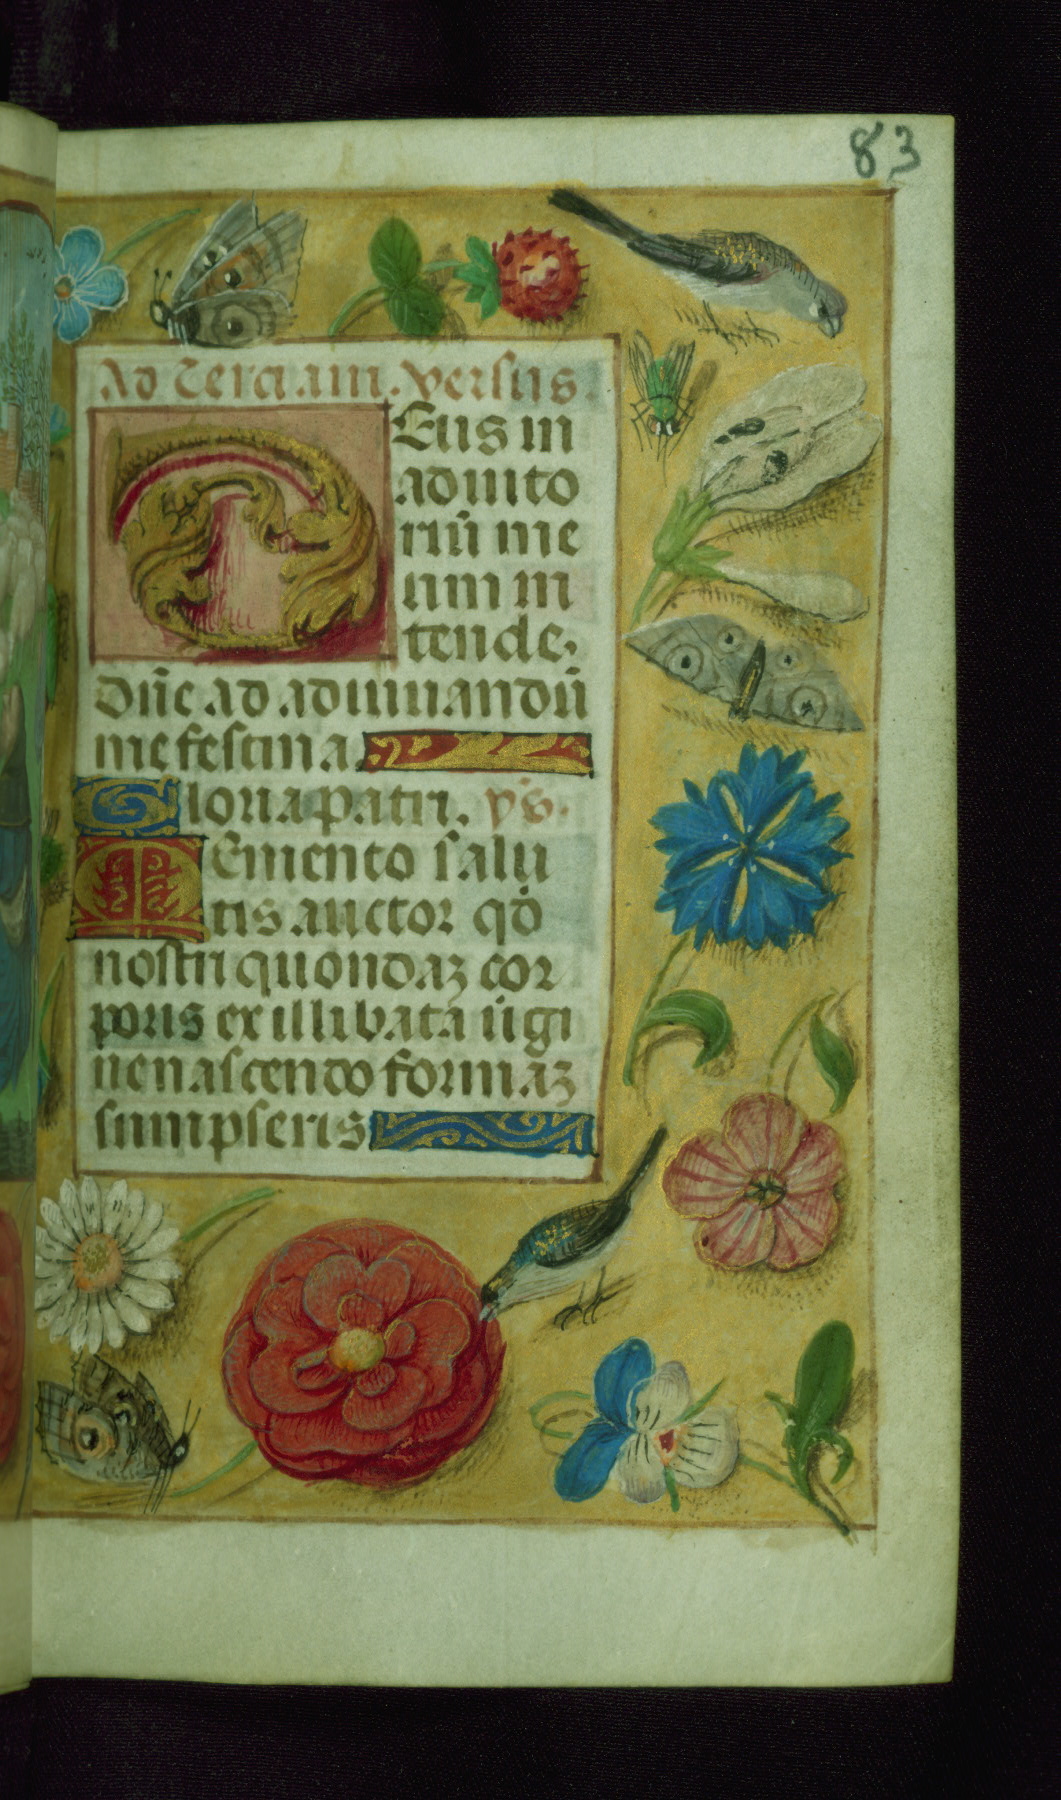 83
Ad Terciam. versus.
Deus in
adiuto
riū me
um in
tende,
dñe ad adiuuandū
me festina
Gloria patri. v̄s.
Memento salu
tis auctor qđ
nostri quondaʒ cor
poris ex illibata ūgi
ne nascendo formāʒ
sumpseris